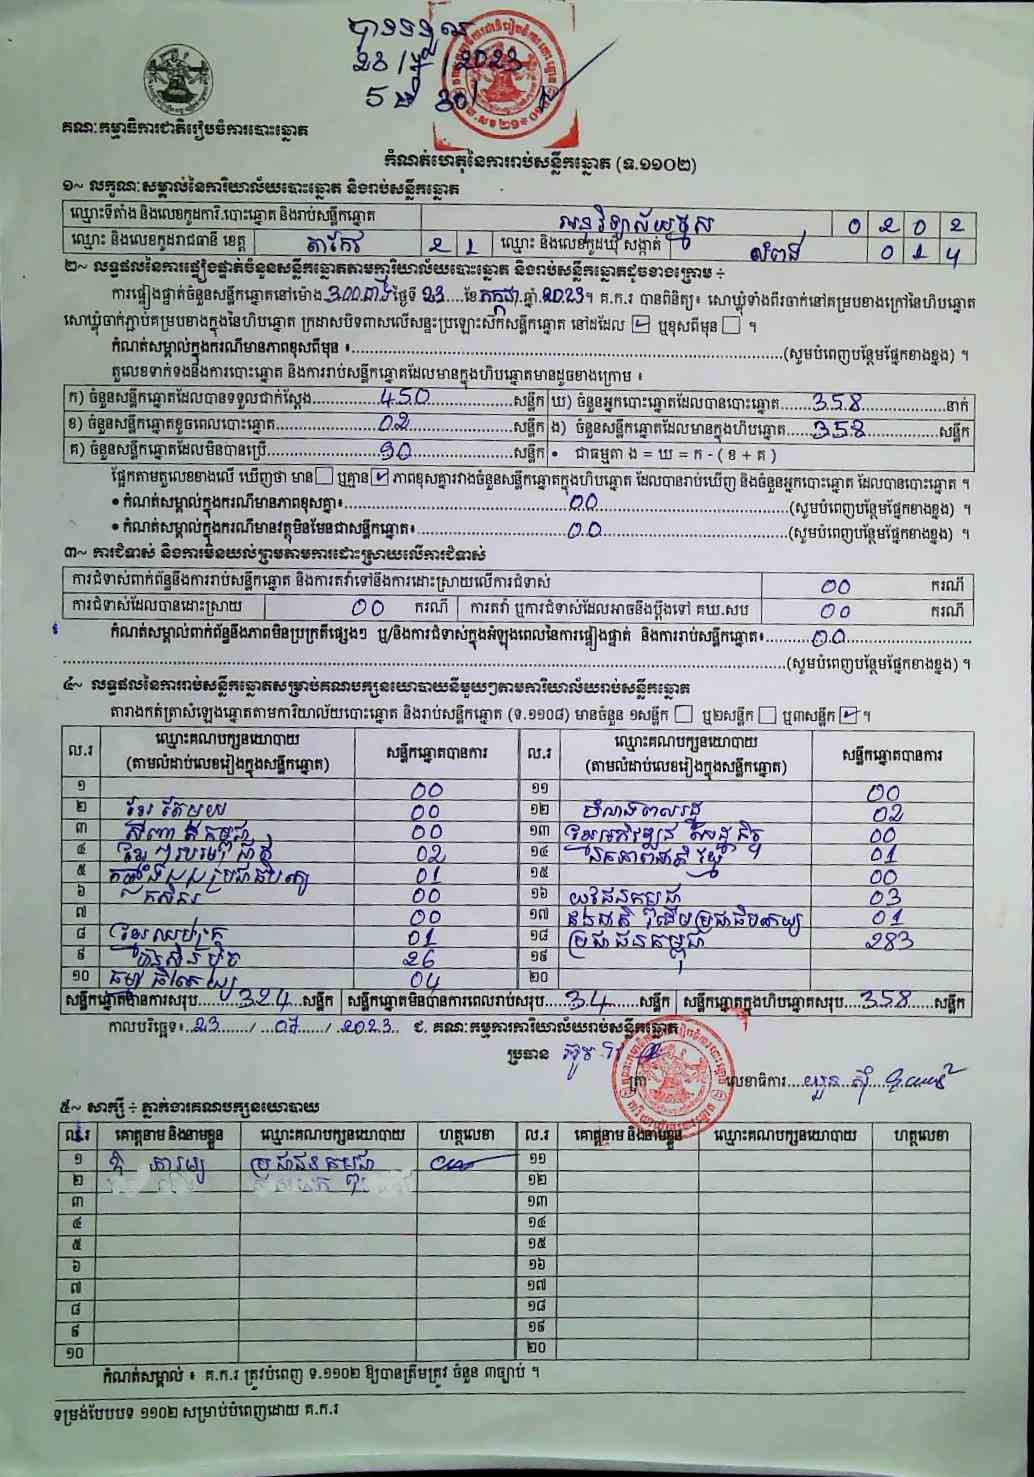 បានទទួល
23 / 7 / 2023
5 ម៉ 30
គណៈកម្មាធិការជាតិរៀបចំការបោះឆ្នោត
កំណត់ហេតុនៃការរាប់សន្លឹកឆ្នោត (ទ.១១០២)
១~ លក្ខណៈសម្គាល់នៃការិយាល័យបោះឆ្នោត និងរាប់សន្លឹកឆ្នោត
ឈ្មោះទីតាំង និងលេខកូដការិ.បោះឆ្នោត និងរាប់សន្លឹកឆ្នោត អនុវិទ្យាល័យ 0 2 0 2
ឈ្មោះ និងលេខកូដរាជធានី ខេត្ត តាកែវ 2 1 ឈ្មោះ និងលេខកូដឃុំ សង្កាត់ លំពង់ 0 1 4
២~ លទ្ធផលនៃការផ្ទៀងផ្ទាត់ចំនួនសន្លឹកឆ្នោតតាមការិយាល័យបោះឆ្នោត និងរាប់សន្លឹកឆ្នោតដូចខាងក្រោម ÷
ការផ្ទៀងផ្ទាត់ចំនួនសន្លឹកឆ្នោតនៅម៉ោង 3:00 នាទី ថ្ងៃទី 23 ខែ កក្កដា ឆ្នាំ 2023។ គ.ក.រ បានពិនិត្យ៖ សោឃ្លុំទាំងពីរចាក់នៅគម្របខាងក្រៅនៃហិបឆ្នោត
សោឃ្លុំចាក់ភ្ជាប់គម្របខាងក្នុងនៃហិបឆ្នោត ក្រដាសបិទពាសលើសន្ទះប្រឡោះស៊កសន្លឹកឆ្នោត នៅដដែល ☑ ឬខុសពីមុន ☐ ។
កំណត់សម្គាល់ក្នុងករណីមានភាពខុសពីមុន ៖ (សូមបំពេញបន្ថែមផ្នែកខាងខ្នង) ។
តួលេខទាក់ទងនឹងការបោះឆ្នោត និងការរាប់សន្លឹកឆ្នោតដែលមានក្នុងហិបឆ្នោតមានដូចខាងក្រោម ៖
ក) ចំនួនសន្លឹកឆ្នោតដែលបានទទួលជាក់ស្ដែង 450 សន្លឹក ឃ) ចំនួនអ្នកបោះឆ្នោតដែលបានបោះឆ្នោត 358 នាក់
ខ) ចំនួនសន្លឹកឆ្នោតខូចពេលបោះឆ្នោត 02 សន្លឹក ង) ចំនួនសន្លឹកឆ្នោតដែលមានក្នុងហិបឆ្នោត 358 សន្លឹក
គ) ចំនួនសន្លឹកឆ្នោតដែលមិនបានប្រើ 90 សន្លឹក • ជាធម្មតា ង = ឃ = ក - ( ខ + គ )
ផ្អែកតាមតួលេខខាងលើ ឃើញថា មាន ☐ ឬគ្មាន ☑ ភាពខុសគ្នារវាងចំនួនសន្លឹកឆ្នោតក្នុងហិបឆ្នោត ដែលបានរាប់ឃើញ និងចំនួនអ្នកបោះឆ្នោត ដែលបានបោះឆ្នោត ។
• កំណត់សម្គាល់ក្នុងករណីមានភាពខុសគ្នា៖ 00 (សូមបំពេញបន្ថែមផ្នែកខាងខ្នង) ។
• កំណត់សម្គាល់ក្នុងករណីមានវត្ថុមិនមែនជាសន្លឹកឆ្នោត៖ 00 (សូមបំពេញបន្ថែមផ្នែកខាងខ្នង) ។
៣~ ការជំទាស់ និងការមិនយល់ព្រមតាមការដោះស្រាយលើការជំទាស់
ការជំទាស់ពាក់ព័ន្ធនឹងការរាប់សន្លឹកឆ្នោត និងការតវ៉ាទៅនឹងការដោះស្រាយលើការជំទាស់ 00 ករណី
ការជំទាស់ដែលបានដោះស្រាយ 00 ករណី ការតវ៉ា ឬការជំទាស់ដែលអាចនឹងប្ដឹងទៅ គឃ.សប 00 ករណី
កំណត់សម្គាល់ពាក់ព័ន្ធនឹងភាពមិនប្រក្រតីផ្សេងៗ ឬ/និងការជំទាស់ក្នុងអំឡុងពេលនៃការផ្ទៀងផ្ទាត់ និងការរាប់សន្លឹកឆ្នោត៖ 00
(សូមបំពេញបន្ថែមផ្នែកខាងខ្នង) ។
៤~ លទ្ធផលនៃការរាប់សន្លឹកឆ្នោតសម្រាប់គណបក្សនយោបាយនីមួយៗតាមការិយាល័យរាប់សន្លឹកឆ្នោត
តារាងកត់ត្រាសំឡេងឆ្នោតតាមការិយាល័យបោះឆ្នោត និងរាប់សន្លឹកឆ្នោត (ទ.១១០៨) មានចំនួន ១សន្លឹក ☐ ឬ២សន្លឹក ☐ ឬ៣សន្លឹក ☑ ។
ល.រ ឈ្មោះគណបក្សនយោបាយ (តាមលំដាប់លេខរៀងក្នុងសន្លឹកឆ្នោត) សន្លឹកឆ្នោតបានការ ល.រ ឈ្មោះគណបក្សនយោបាយ (តាមលំដាប់លេខរៀងក្នុងសន្លឹកឆ្នោត) សន្លឹកឆ្នោតបានការ
១ 00 ១១ 00
២ ខ្មែរតែមួយ 00 ១២ 02
៣ 00 ១៣ 00
៤ 02 ១៤ 01
៥ 01 ១៥ 00
៦ កសិករ ១៦ យុវជនកម្ពុជា 03
៧ 00 ១៧ 01
៨ 01 ១៨ ប្រជាជនកម្ពុជា 283
៩ 26 ១៩
១០ ធម្មាធិបតេយ្យ 04 ២០
សន្លឹកឆ្នោតបានការសរុប 324 សន្លឹក សន្លឹកឆ្នោតមិនបានការពេលរាប់សរុប 34 សន្លឹក សន្លឹកឆ្នោតក្នុងហិបឆ្នោតសរុប 358 សន្លឹក
កាលបរិច្ឆេទ៖ 23 / 07 / 2023 ជ. គណៈកម្មការការិយាល័យរាប់សន្លឹកឆ្នោត
ប្រធាន ត្រា លេខាធិការ
៥~ សាក្សី ÷ ភ្នាក់ងារគណបក្សនយោបាយ
ល.រ គោត្តនាម និងនាមខ្លួន ឈ្មោះគណបក្សនយោបាយ ហត្ថលេខា ល.រ គោត្តនាម និងនាមខ្លួន ឈ្មោះគណបក្សនយោបាយ ហត្ថលេខា
១ ប្រជាជនកម្ពុជា ១១
២ ១២
៣ ១៣
៤ ១៤
៥ ១៥
៦ ១៦
៧ ១៧
៨ ១៨
៩ ១៩
១០ ២០
កំណត់សម្គាល់ ៖ គ.ក.រ ត្រូវបំពេញ ទ.១១០២ ឱ្យបានត្រឹមត្រូវ ចំនួន ៣ច្បាប់ ។
ទម្រង់បែបបទ ១១០២ សម្រាប់បំពេញដោយ គ.ក.រ